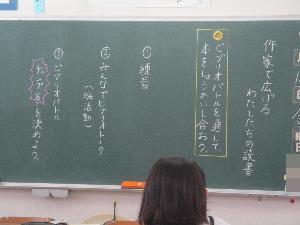 作家で広げる
わたしたちの読書
め
ビブリオバトルを通して、
本をしょうかいし合おう。
① 練習
② みんなでビブリオトーク
(班活動)
③ ビブリオバトル
チャンプ本を決めよう。